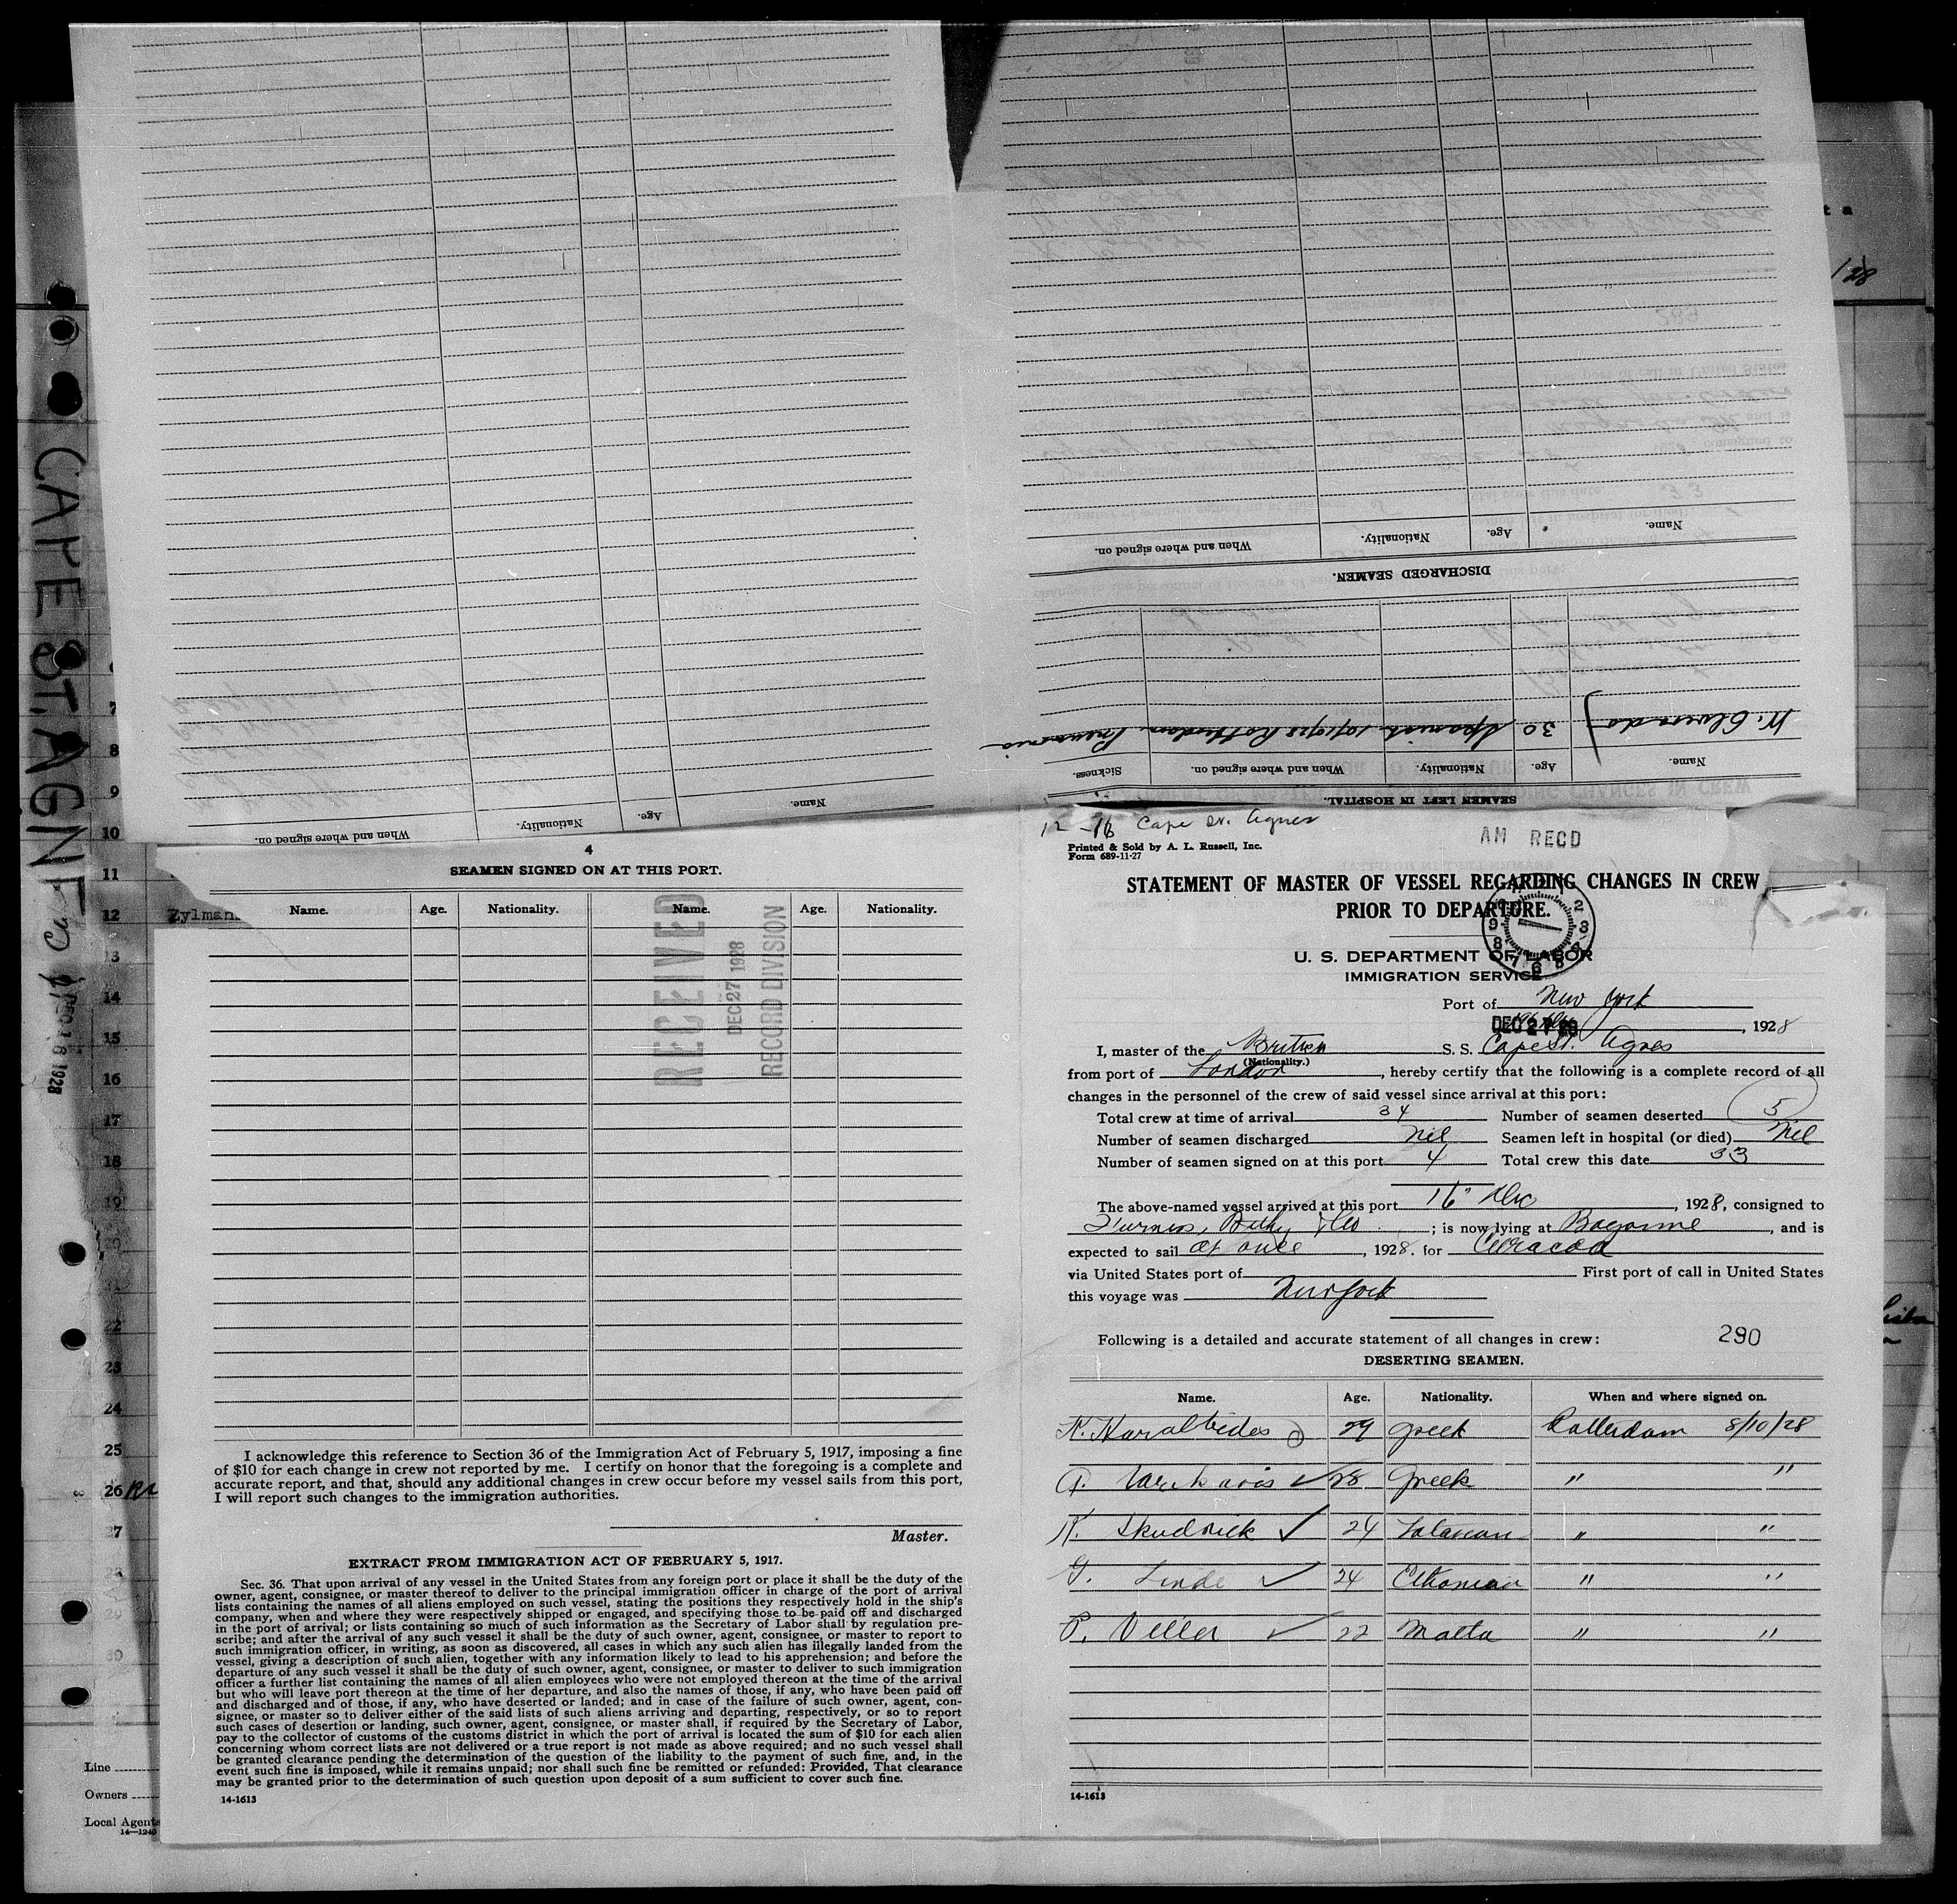 CAPE ST. AGNE
DEC 16 1928
/28
Name.
Age.
Nationality.
When and where signed on.
SEAMEN LEFT IN HOSPITAL.
Name.
Age.
Nationality.
When and where signed on.
Sickness.
30 Spanish Rotterdam
DISCHARGED SEAMEN.
Name.
Age.
Nationality.
When and where signed on.
289
6
7
8
9
10
11
12
13
14
15
16
17
18
19
20
21
22
23
24
25
26
27
28
29
30
Line
Owners
Local Agents
14—1240
Zylman
4
SEAMEN SIGNED ON AT THIS PORT.
Name. Age. Nationality. Name. Age. Nationality.
RECEIVED
DEC 27 1928
RECORD DIVISION
I acknowledge this reference to Section 36 of the Immigration Act of February 5, 1917, imposing a fine
of $10 for each change in crew not reported by me. I certify on honor that the foregoing is a complete and
accurate report, and that, should any additional changes in crew occur before my vessel sails from this port,
I will report such changes to the immigration authorities.
Master.
EXTRACT FROM IMMIGRATION ACT OF FEBRUARY 5, 1917.
Sec. 36. That upon arrival of any vessel in the United States from any foreign port or place it shall be the duty of the
owner, agent, consignee, or master thereof to deliver to the principal immigration officer in charge of the port of arrival
lists containing the names of all aliens employed on such vessel, stating the positions they respectively hold in the ship's
company, when and where they were respectively shipped or engaged, and specifying those to be paid off and discharged
in the port of arrival; or lists containing so much of such information as the Secretary of Labor shall by regulation pre-
scribe; and after the arrival of any such vessel it shall be the duty of such owner, agent, consignee, or master to report to
such immigration officer, in writing, as soon as discovered, all cases in which any such alien has illegally landed from the
vessel, giving a description of such alien, together with any information likely to lead to his apprehension; and before the
departure of any such vessel it shall be the duty of such owner, agent, consignee, or master to deliver to such immigration
officer a further list containing the names of all alien employees who were not employed thereon at the time of the arrival
but who will leave port thereon at the time of her departure, and also the names of those, if any, who have been paid off
and discharged and of those, if any, who have deserted or landed; and in case of the failure of such owner, agent, con-
signee, or master so to deliver either of the said lists of such aliens arriving and departing, respectively, or so to report
such cases of desertion or landing, such owner, agent, consignee, or master shall, if required by the Secretary of Labor,
pay to the collector of customs of the customs district in which the port of arrival is located the sum of $10 for each alien
concerning whom correct lists are not delivered or a true report is not made as above required; and no such vessel shall
be granted clearance pending the determination of the question of the liability to the payment of such fine, and, in the
event such fine is imposed, while it remains unpaid; nor shall such fine be remitted or refunded: Provided, That clearance
may be granted prior to the determination of such question upon deposit of a sum sufficient to cover such fine.
14-1613
12-16 Cape St. Agnes
AM RECD
Printed & Sold by A. L. Russell, Inc.
Form 689-11-27
STATEMENT OF MASTER OF VESSEL REGARDING CHANGES IN CREW
PRIOR TO DEPARTURE.
U. S. DEPARTMENT OF LABOR
IMMIGRATION SERVICE
Port of New York
DEC 27 28, 1928
I, master of the British S. S. Cape St. Agnes
(Nationality.)
from port of London, hereby certify that the following is a complete record of all
changes in the personnel of the crew of said vessel since arrival at this port:
Total crew at time of arrival 34 Number of seamen deserted 5
Number of seamen discharged Nil Seamen left in hospital (or died) Nil
Number of seamen signed on at this port 4 Total crew this date 33
The above-named vessel arrived at this port 16 Dec, 1928, consigned to
Furness, Withy & Co; is now lying at Bayonne, and is
expected to sail at once, 1928. for Curacoa
via United States port of First port of call in United States
this voyage was New York
Following is a detailed and accurate statement of all changes in crew: 290
DESERTING SEAMEN.
Name. Age. Nationality. When and where signed on.
29 Greek Rotterdam 8/10/28
28 Greek " "
K. Skudrick ✓ 24 " "
Linde ✓ 24 " "
P. Veller ✓ 22 Malta " "
14-1613